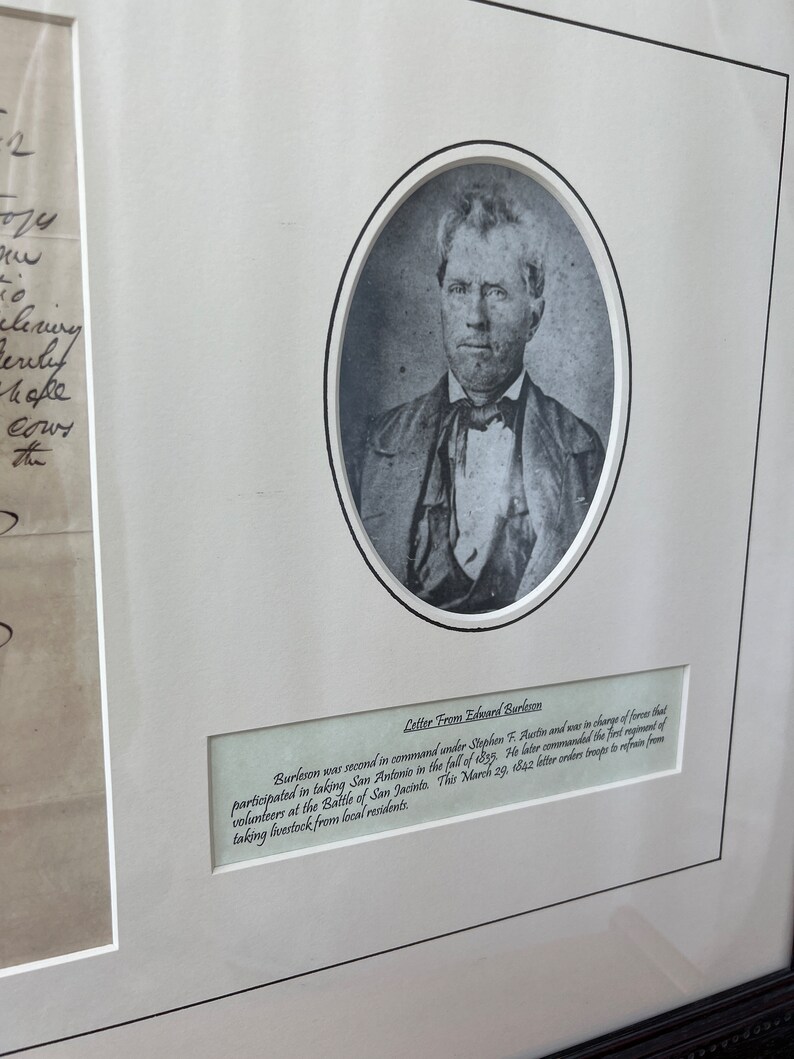 cows
the
Letter From Edward Burleson
Burleson was second in command under Stephen F. Austin and was in charge of forces that
participated in taking San Antonio in the fall of 1835. He later commanded the first regiment of
volunteers at the Battle of San Jacinto. This March 29, 1842 letter orders troops to refrain from
taking livestock from local residents.